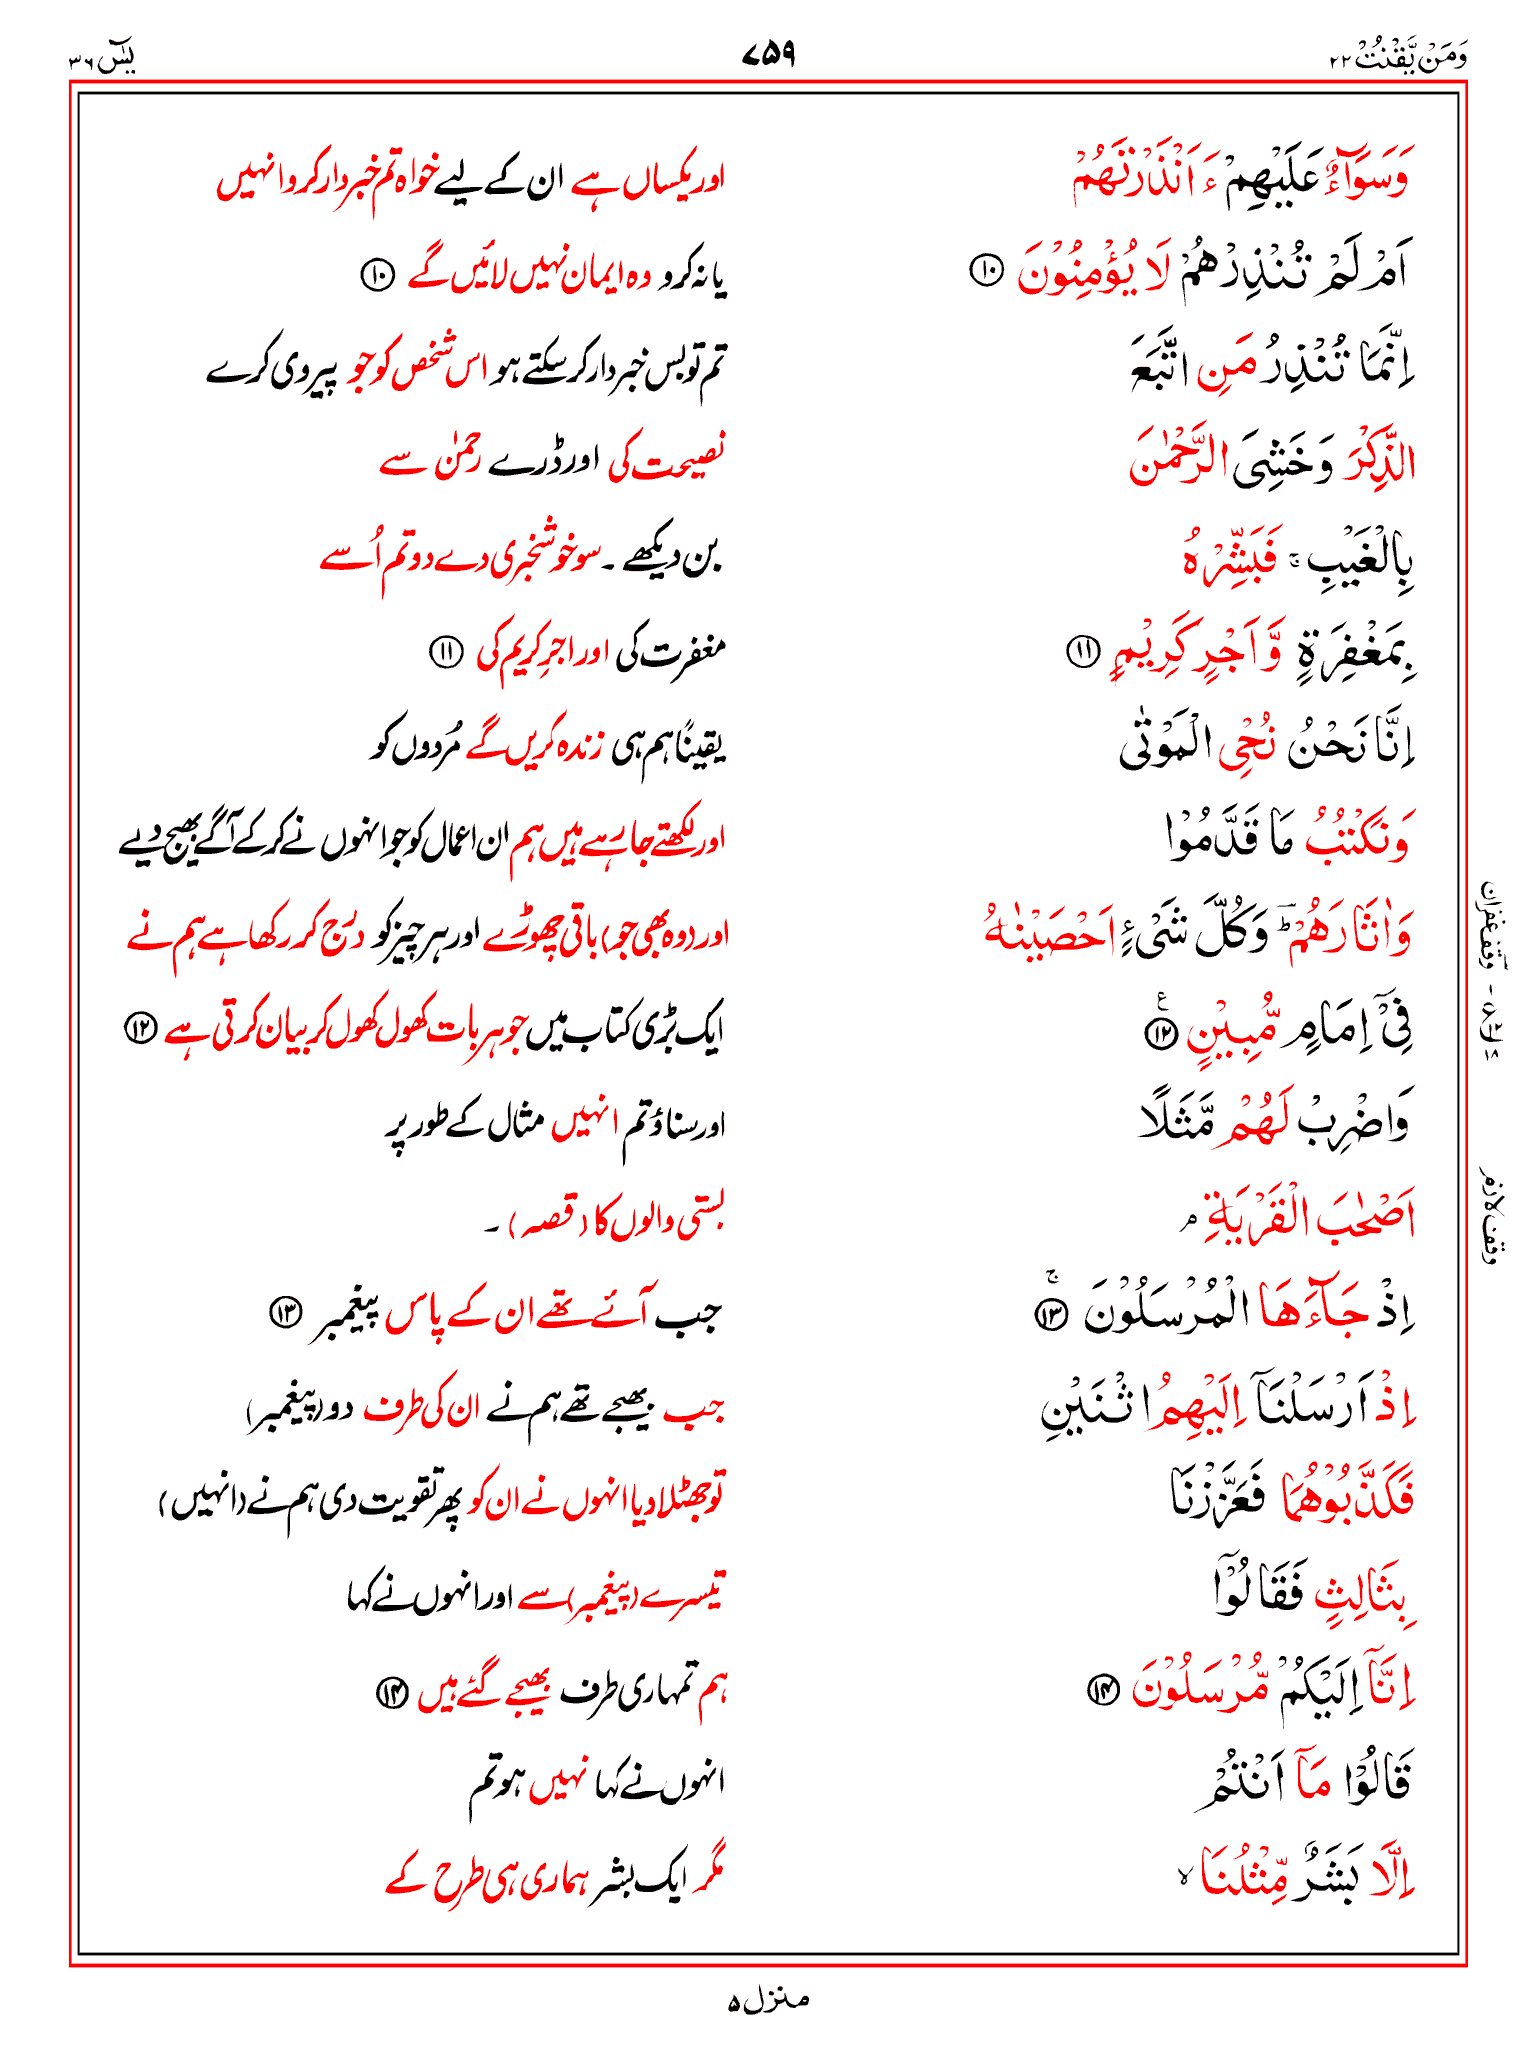 وَمَنْ يَّقْنُتْ ۲۲
۷۵۹
يٰسٓ ۳۶
وَسَوَآءٌ عَلَيْهِمْ ءَاَنْذَرْتَهُمْ
اور یکساں ہے ان کے لیے خواہ تم خبردار کرو انہیں
اَمْ لَمْ تُنْذِرْهُمْ لَا يُؤْمِنُوْنَ ۱۰
یا نہ کرو وہ ایمان نہیں لائیں گے ۱۰
اِنَّمَا تُنْذِرُ مَنِ اتَّبَعَ
تم تو بس خبردار کر سکتے ہو اس شخص کو جو پیروی کرے
الذِّكْرَ وَخَشِىَ الرَّحْمٰنَ
نصیحت کی اور ڈرے رحمٰن سے
بِالْغَيْبِ ۚ فَبَشِّرْهُ
بن دیکھے ۔ سو خوشخبری دے دو تم اُسے
بِمَغْفِرَةٍ وَّاَجْرٍ كَرِيْمٍ ۱۱
مغفرت کی اور اجرِ کریم کی ۱۱
اِنَّا نَحْنُ نُحْىِ الْمَوْتٰى
یقیناً ہم ہی زندہ کریں گے مُردوں کو
وَنَكْتُبُ مَا قَدَّمُوْا
اور لکھتے جا رہے ہیں ہم ان اعمال کو جو انہوں نے کر کے آگے بھیج دیے
وَاٰثَارَهُمْ ؕ وَكُلَّ شَىْءٍ اَحْصَيْنٰهُ
اور (وہ بھی جو) باقی چھوڑے اور ہر چیز کو درج کر رکھا ہے ہم نے
فِىْٓ اِمَامٍ مُّبِيْنٍ ۱۲ ع
ایک بڑی کتاب میں جو ہر بات کھول کھول کر بیان کرتی ہے ۱۲
وَاضْرِبْ لَهُمْ مَّثَلًا
اور سناؤ تم انہیں مثال کے طور پر
اَصْحٰبَ الْقَرْيَةِ ۘ
بستی والوں کا (قصہ) ۔
اِذْ جَآءَهَا الْمُرْسَلُوْنَ ۱۳ ج
جب آئے تھے ان کے پاس پیغمبر ۱۳
اِذْ اَرْسَلْنَآ اِلَيْهِمُ اثْنَيْنِ
جب بھیجے تھے ہم نے ان کی طرف دو (پیغمبر)
فَكَذَّبُوْهُمَا فَعَزَّزْنَا
تو جھٹلا دیا انہوں نے ان کو پھر تقویت دی ہم نے (انہیں)
بِثَالِثٍ فَقَالُوْٓا
تیسرے (پیغمبر) سے اور انہوں نے کہا
اِنَّآ اِلَيْكُمْ مُّرْسَلُوْنَ ۱۴
ہم تمہاری طرف بھیجے گئے ہیں ۱۴
قَالُوْا مَآ اَنْتُمْ
انہوں نے کہا نہیں ہو تم
اِلَّا بَشَرٌ مِّثْلُنَا ۙ
مگر ایک بشر ہماری ہی طرح کے
وقف غفران
وقف لازم
منزل ۵